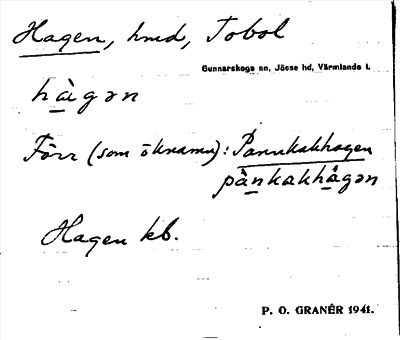 Hagen, hmd, Tobol
Gunnarskogs sn, Jösse hd, Värmlands l.
hàgən
Förr (som öknamn): Pannkakhagen
pànkakhàgən
Hagen kb.
P. O. GRANÉR 1941.